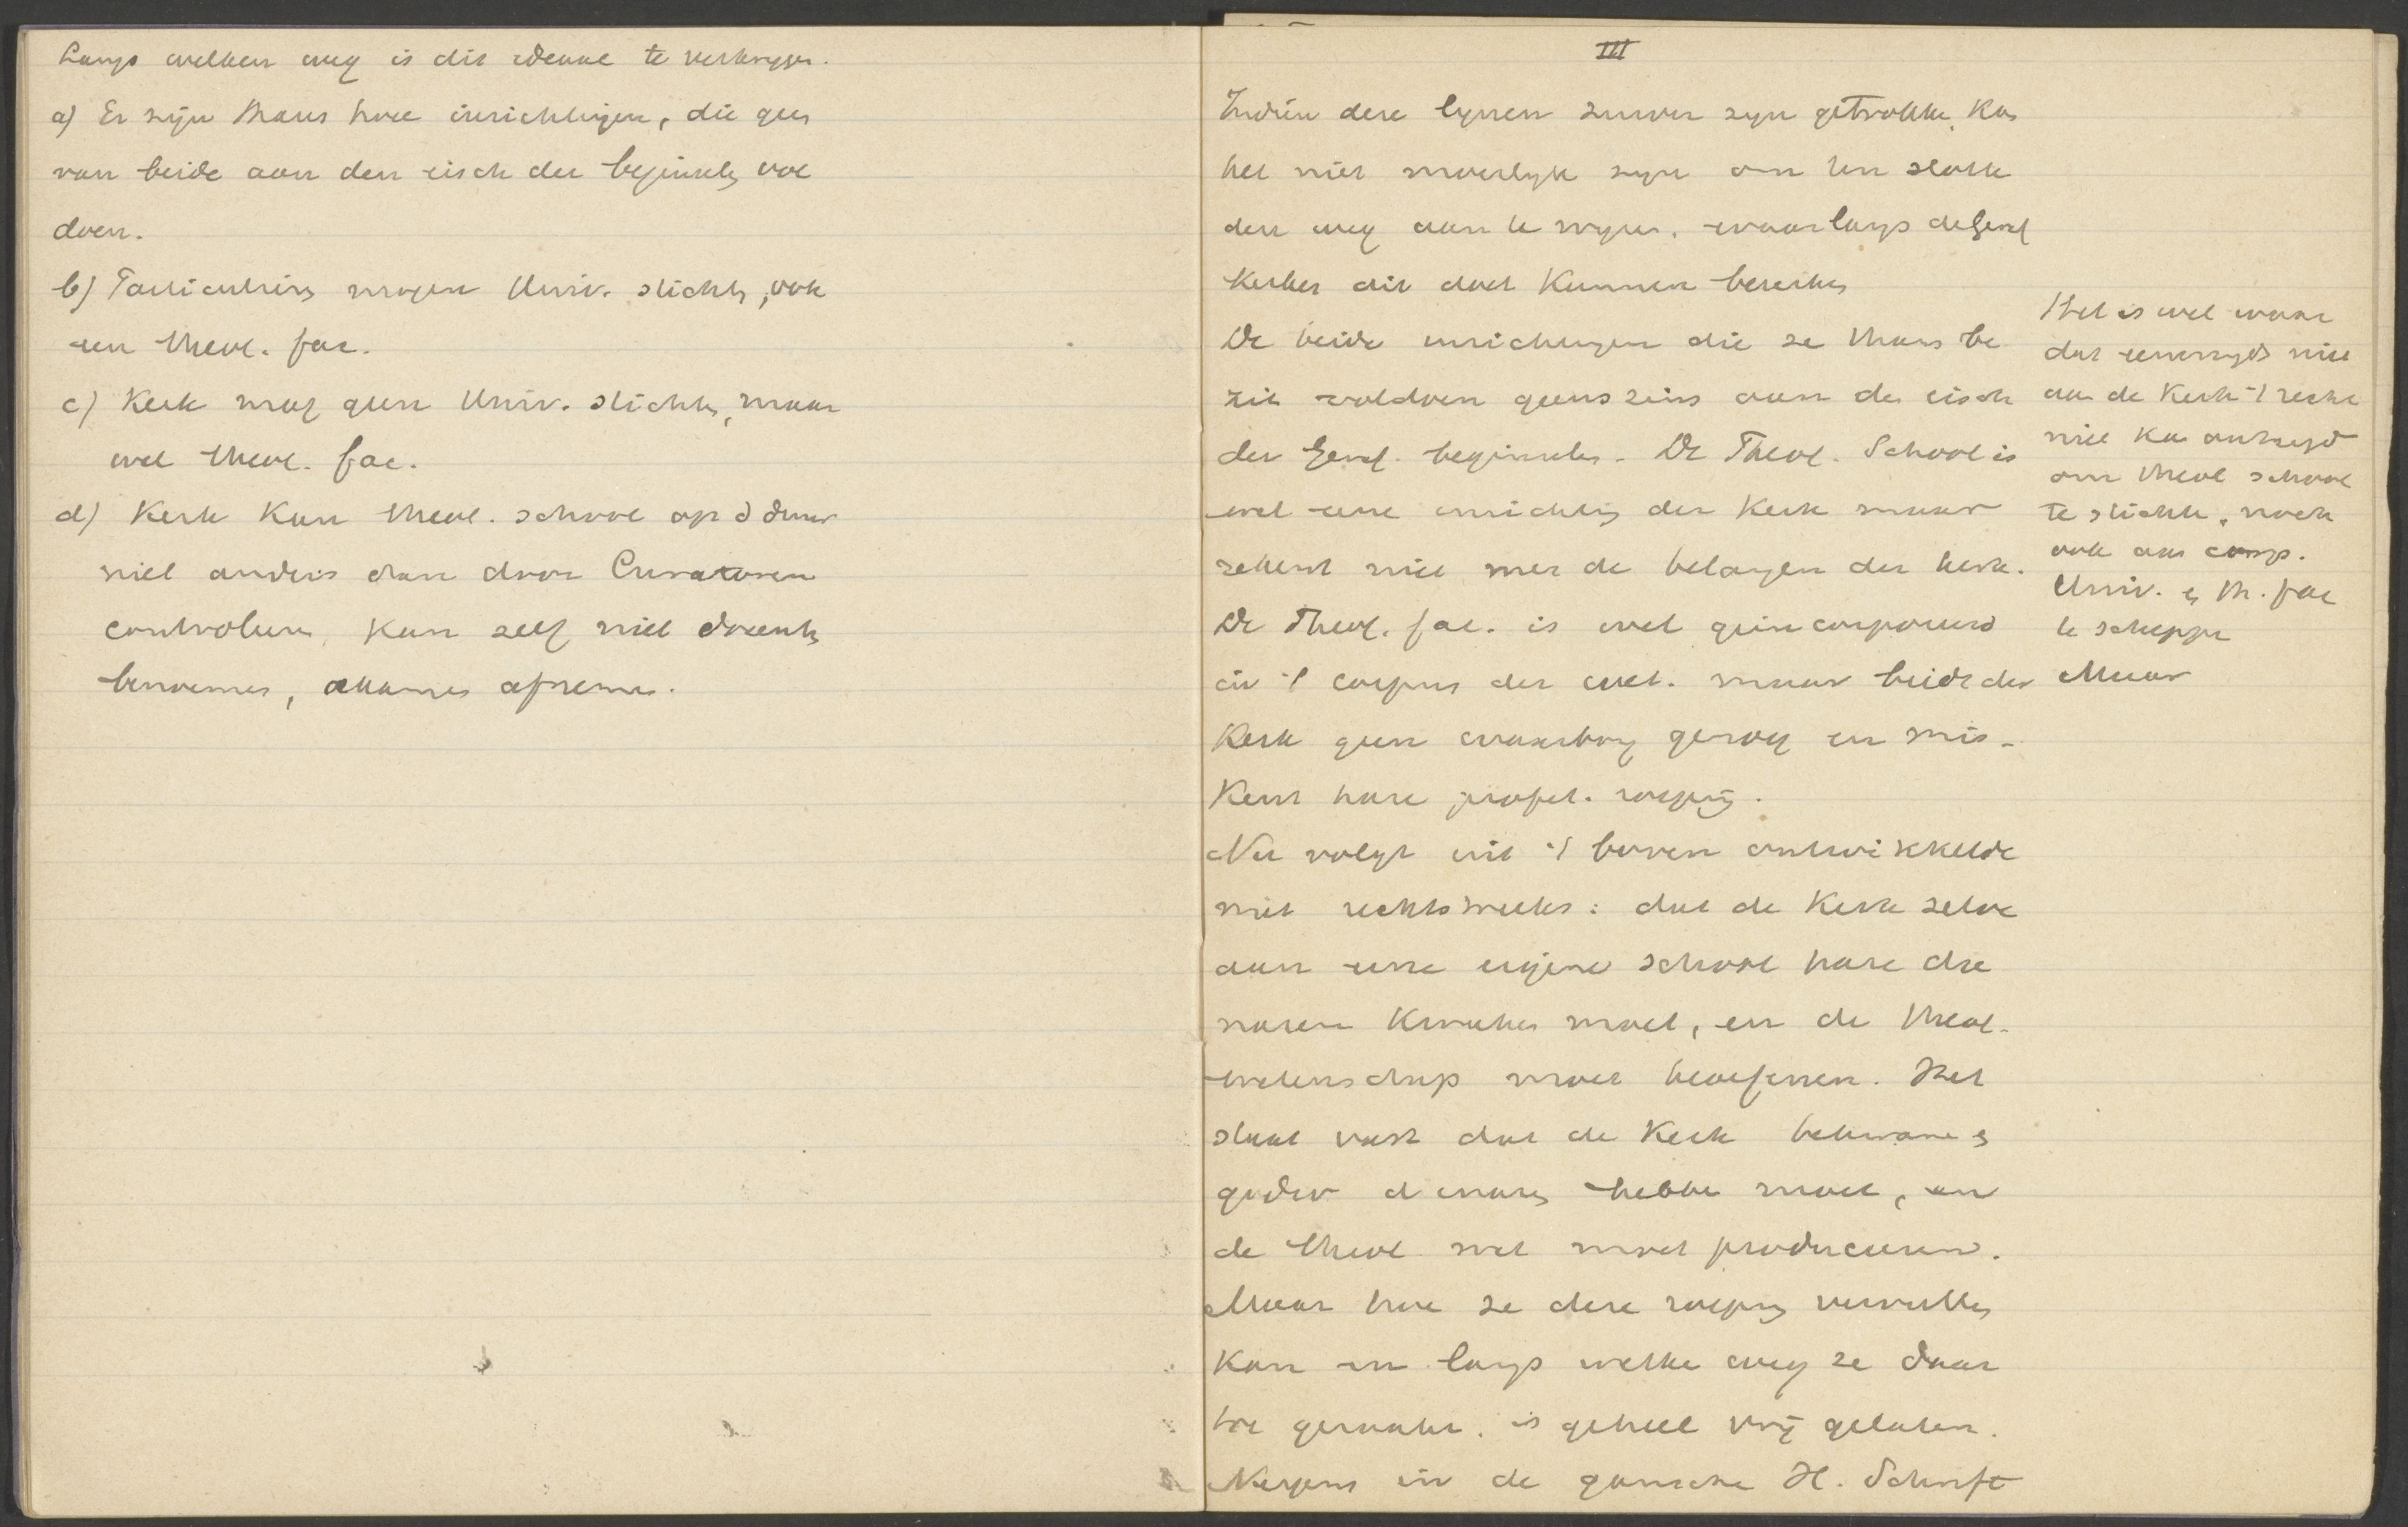 Langs welken weg is dit ideaal te verkrijgen.
a) Er zijn thans twee inrichtingen, die geen
van beide aan den eisch der beginselen vol
doen.
b) Particulieren mogen Univ. stichten, ook
een theol. fac.
c) Kerk mag geen Univ. stichten, maar
wel theol. fac.
d) Kerk kan theol. school op d duur
niet anders dan door Curatoren
controleren, kan zelf niet docenten
benoemen, examen afnemen.
III
Indien deze lijnen zuiver zijn getrokken, kan
het niet moeilijk zijn om ten slotte
den weg aan te wijzen, waarlangs de Geref
kerken dit doel kunnen bereiken
De beide inrichtingen die ze thans be
zit voldoen geenszins aan den eisch
der Geref. beginselen. De Theol. School is
wel eene inrichting der Kerk maar
rekent niet met de belangen der kerk.
De Theol. fac. is wel geincorporeerd
in 't corpus der wet. maar biedt der
Kerk geen waarborg genoeg en mis-
kent hare profet. roeping.
Nu volgt uit 't boven ontwikkelde
niet rechtstreeks: dat de Kerk zelve
aan eene eigene school hare die
naren kweeken moet, en de theol.
wetenschap moet beoefenen. Het
staat vast dat de Kerk bekwame en
godvr dienaren hebben moet, en
de theol wet moet produceeren.
Maar hoe ze deze roeping vervullen
kan en langs welke weg ze daar
toe geraakt, is geheel vrij gelaten.
Nergens in de gansche H. Schrift
Het is wel waar
dat eenerzijds niet
aan de Kerk 't recht
niet kan ontzegd
om theol school
te stichten, noch
ook aan comp.
Univ. en th. fac
te scheppen
Maar